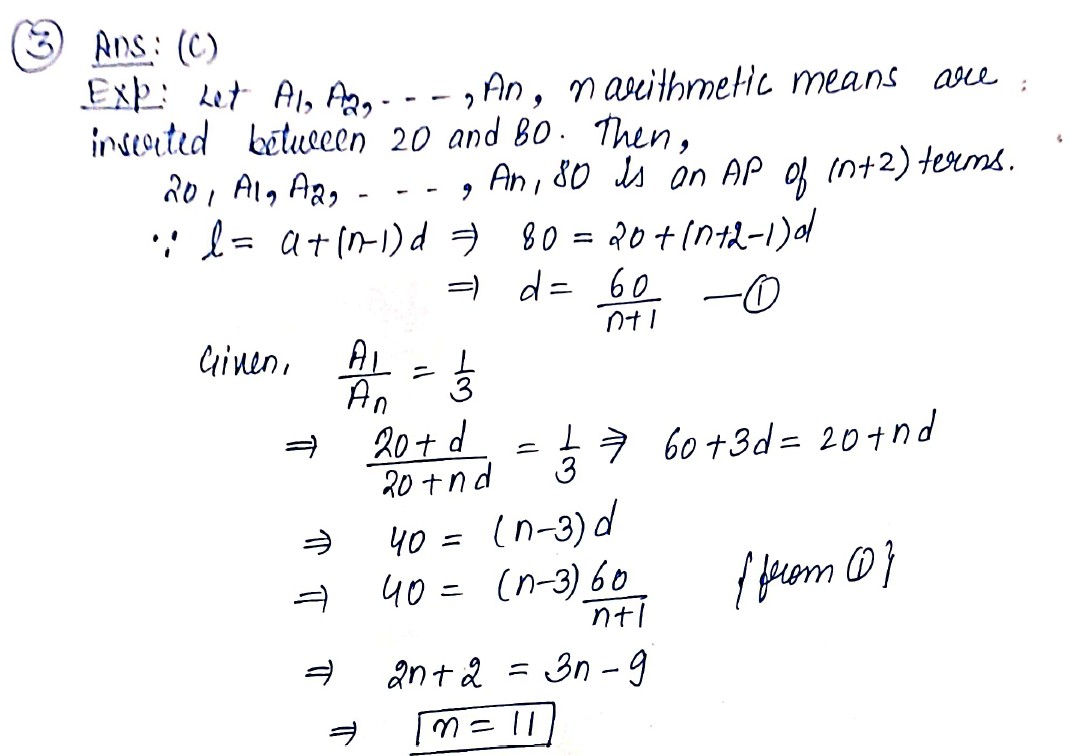 ③ Ans: (C)
Exp: Let A1, A2, - - - , An, n arithmetic means are
inserted between 20 and 80. Then,
20, A1, A2, - - - , An, 80 is an AP of (n+2) terms.
∵ l = a+(n-1)d ⇒ 80 = 20+(n+2-1)d
⇒ d = 60/n+1 —①
Given, A1/An = 1/3
⇒ 20+d/20+nd = 1/3 ⇒ 60+3d = 20+nd
⇒ 40 = (n-3)d
⇒ 40 = (n-3) 60/n+1 {from ①}
⇒ 2n+2 = 3n-9
⇒ n = 11